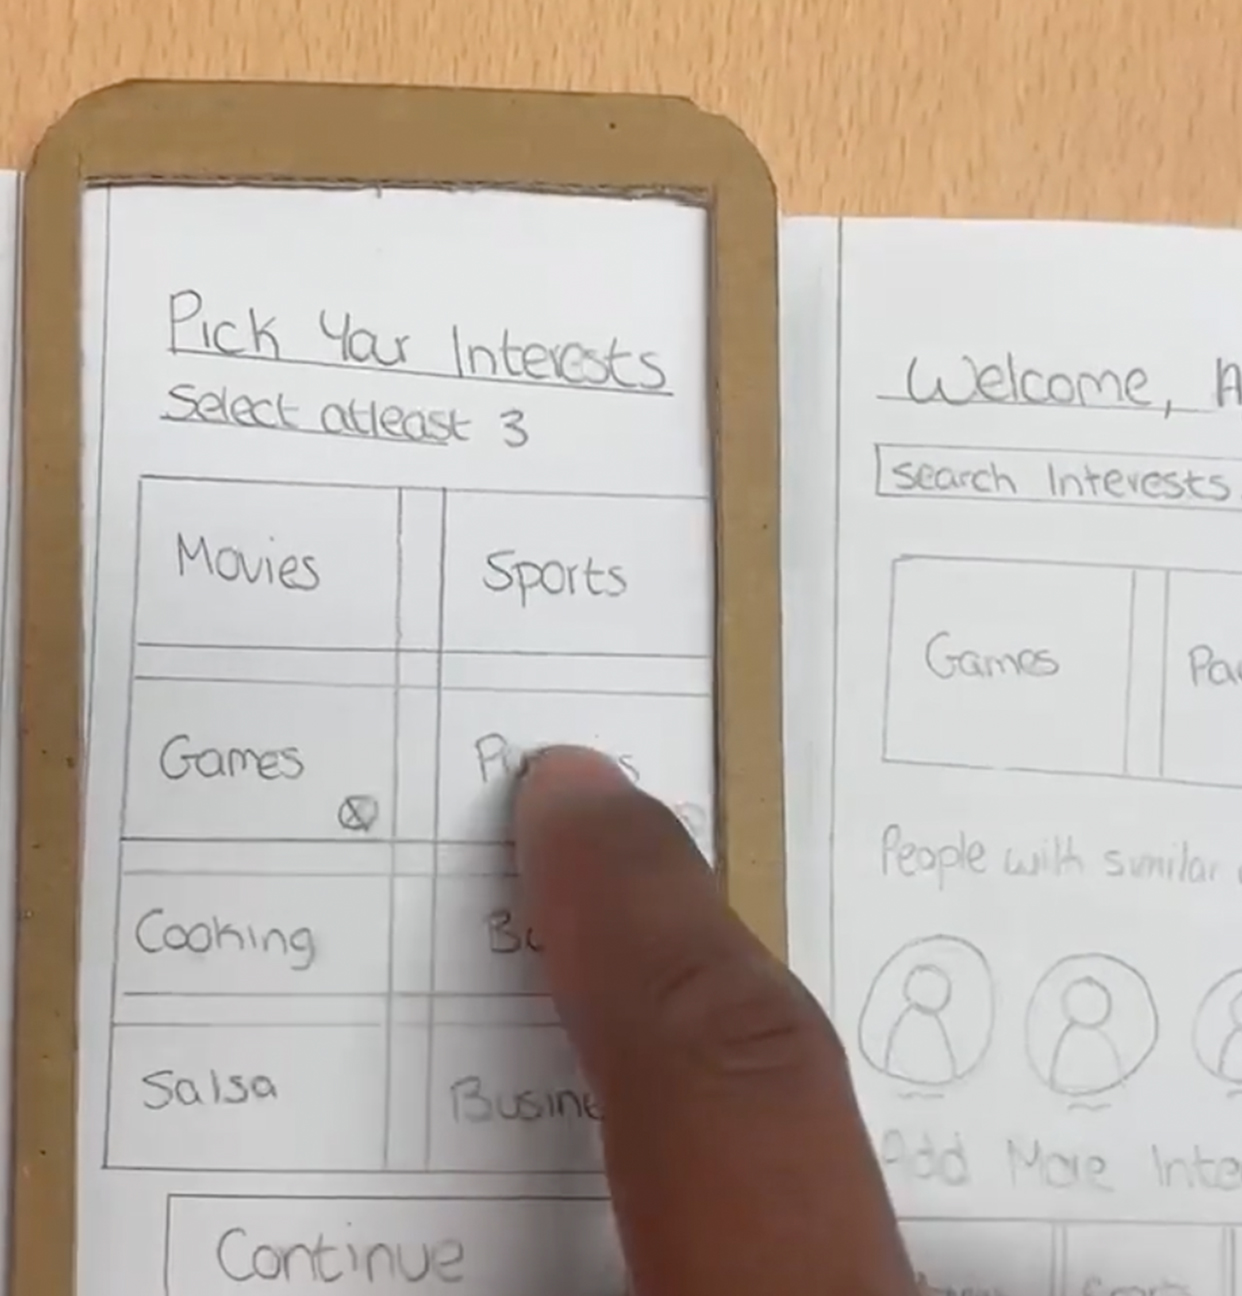 Pick Your Interests
Select atleast 3
Movies
Sports
Games
Cooking
Salsa
Continue
Welcome,
Search Interests
Games
People with similar
Add More